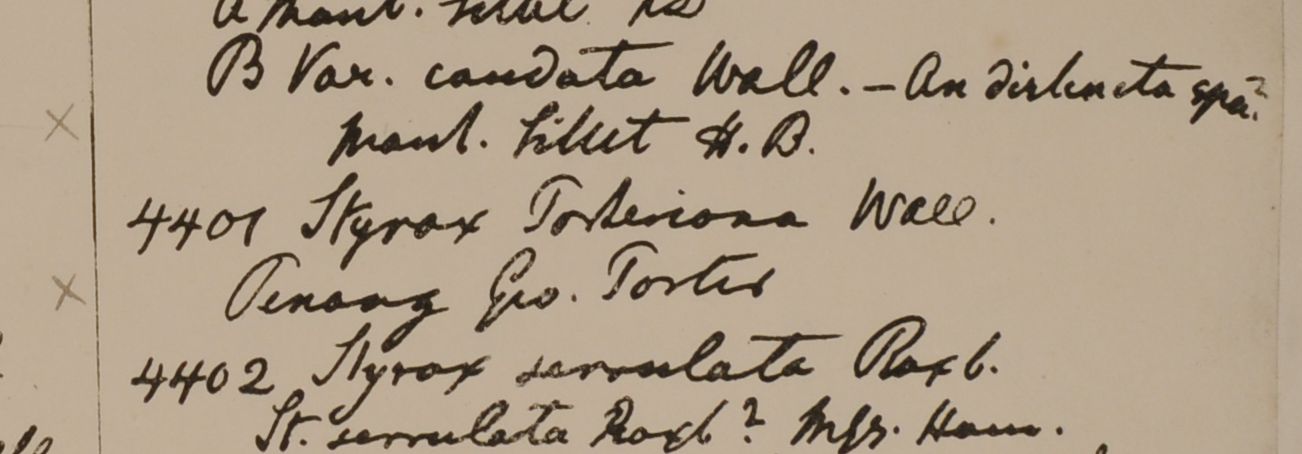 A Mont. Sillet FD
B Var. caudata Wall. – An distincta spa?
Mont. Sillet H.B.
4401 Styrax Porteriana Wall.
Penang Geo. Porter
4402 Styrax serrulata Roxb.
St. serrulata Roxb? Mss. Ham.